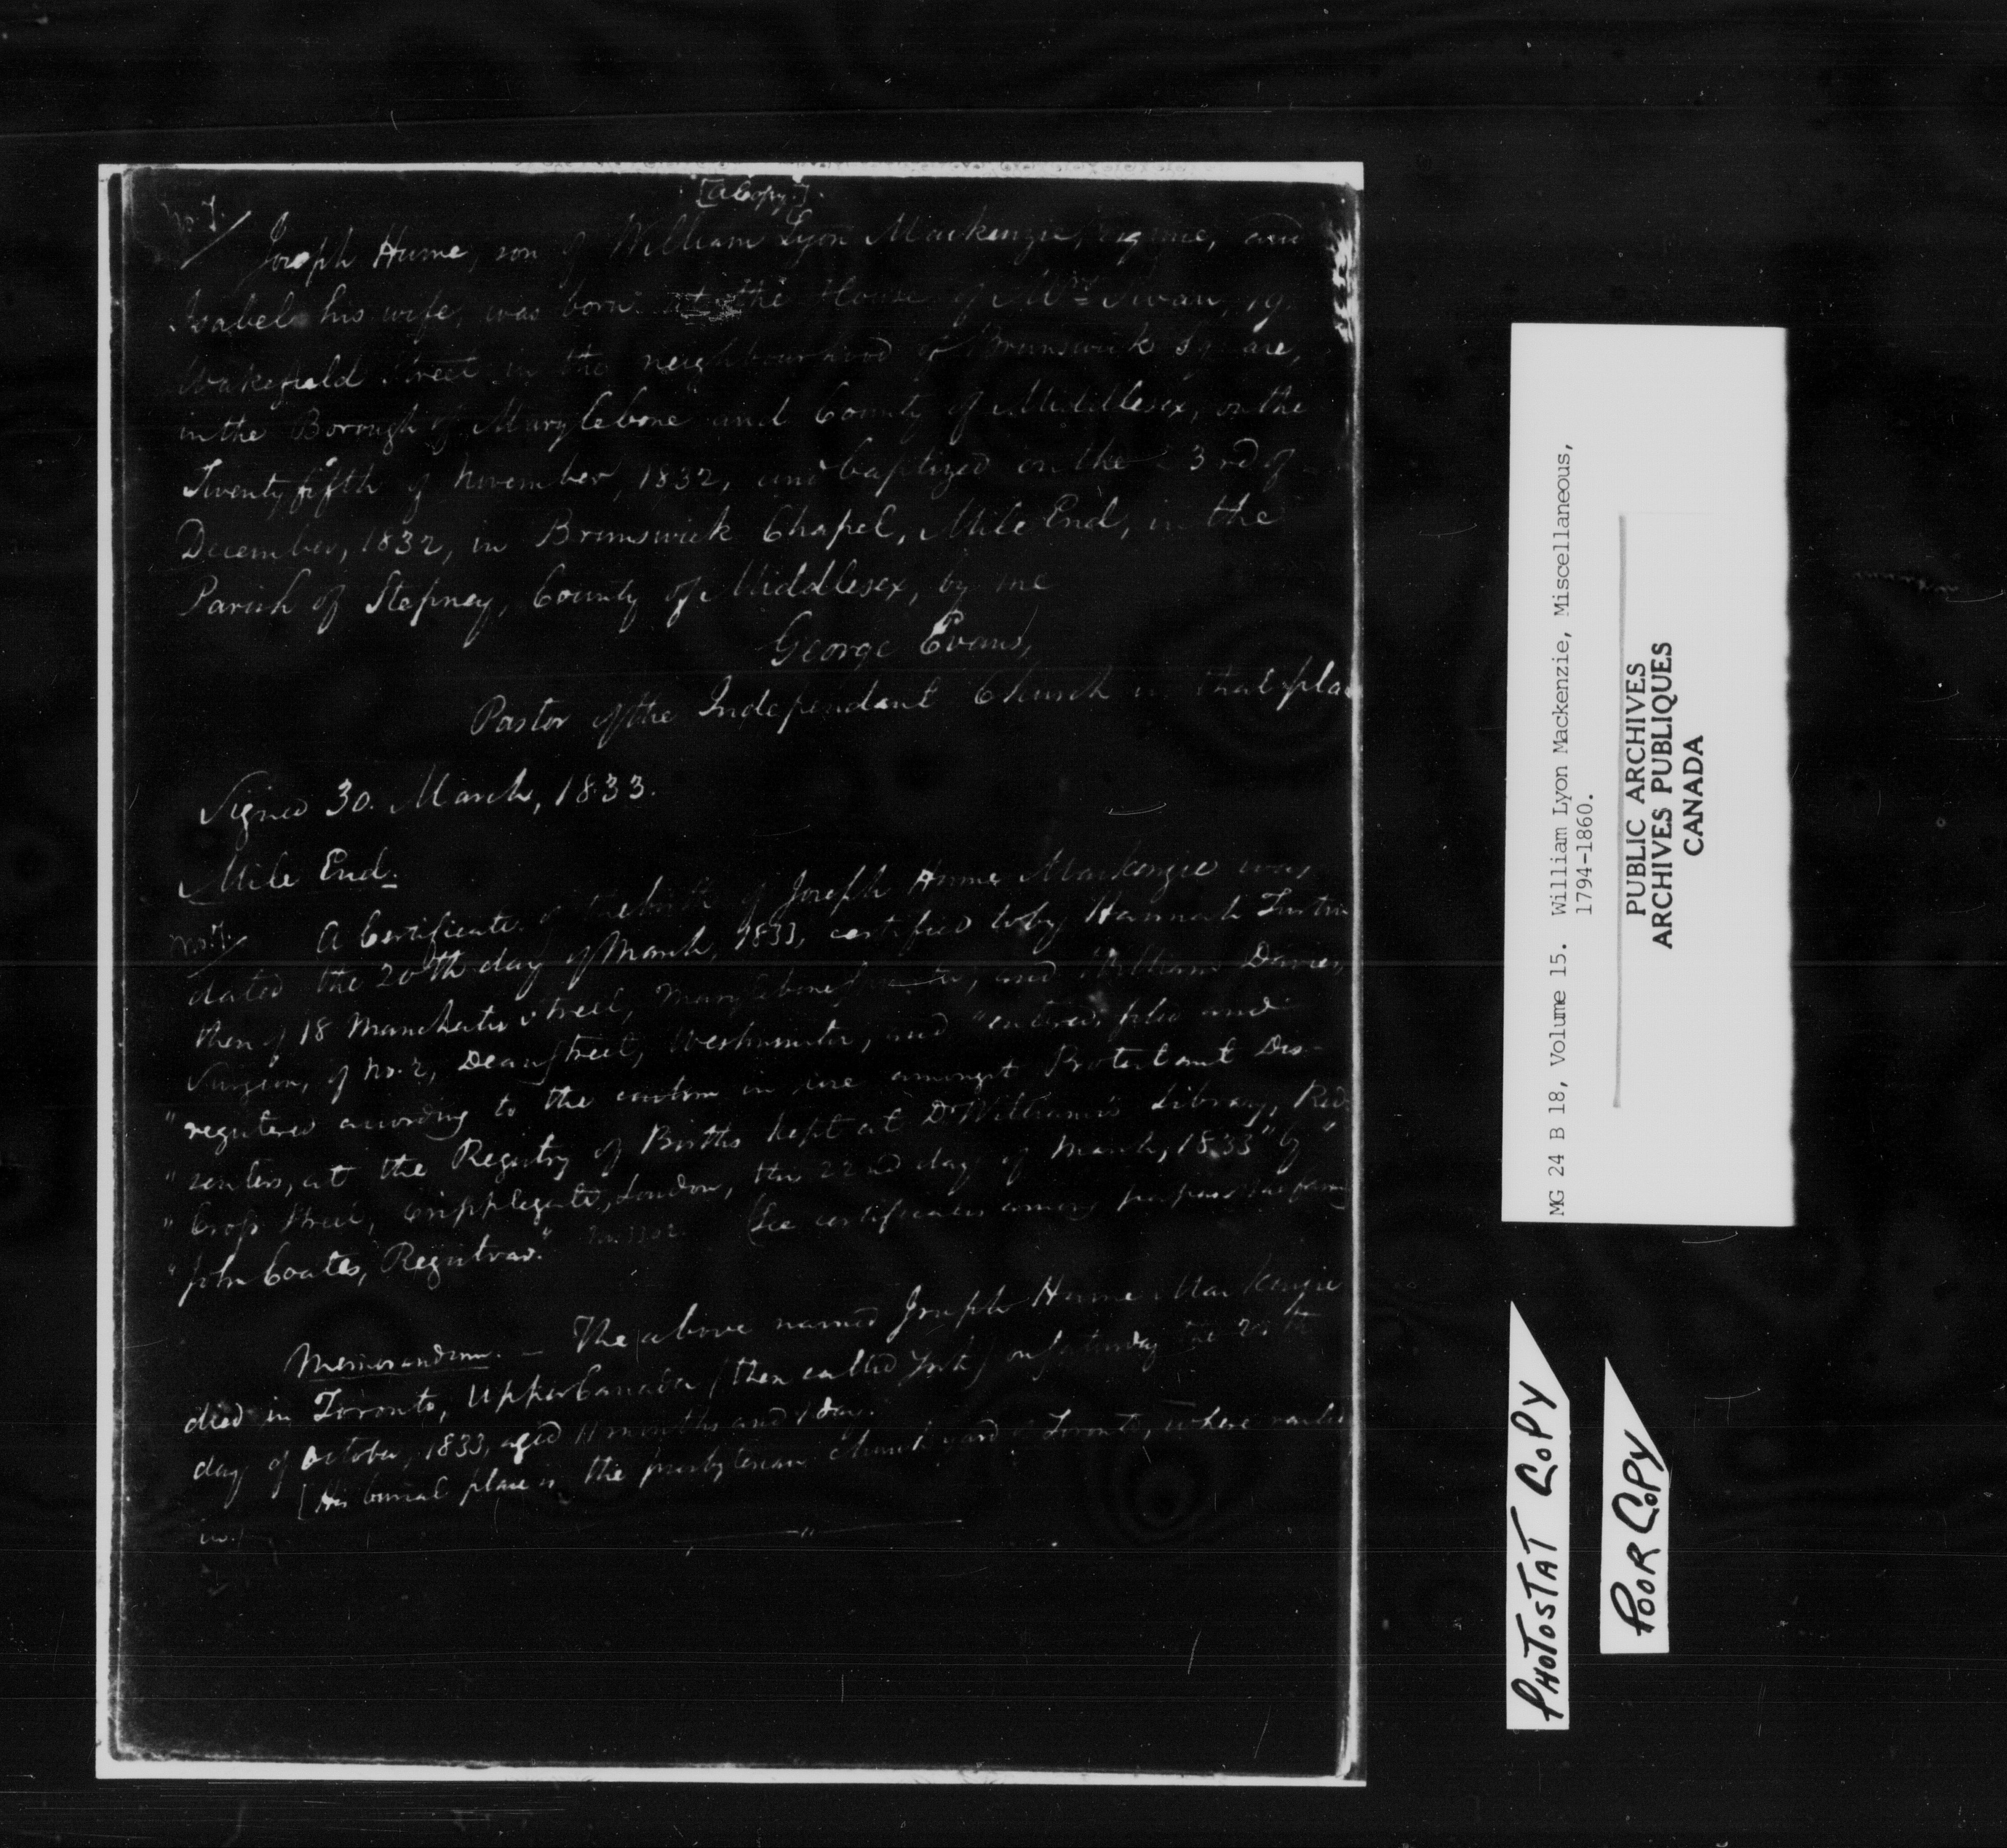 [A Copy.]
No. 7.
Joseph Hume, son of William Lyon Mackenzie, Esquire, and
Isabel his wife, was born at the House of Mrs Swan, 19
Wakefield Street in the neighbourhood of Brunswick Square,
in the Borough of Marylebone and County of Middlesex, on the
Twenty fifth of November, 1832, and baptized on the 23rd of
December, 1832, in Brunswick Chapel, Mile End, in the
Parish of Stepney, County of Middlesex, by me
George Evans,
Pastor of the Independant Church in that pla
Signed 30. March, 1833.
Mile End.
No. 7. A Certificate of the birth of Joseph Hume Mackenzie was
dated the 20th day of March, 1833, certified to by Hannah
then of 18 Manchester Street, Marylebone, and William Davies,
Surgeon, of No. 2, Dean Street, Westminster, and "entered, filed and
" registered according to the custom in use amongst Protestant Dis-
" senters, at the Registry of Births kept at Dr Williams's Library, Red
" Cross Street, Cripplegate, London, this 22nd day of March, 1833" by "
" John Coates, Registrar." (See certificates among papers
Memorandum. — The above named Joseph Hume MacKenzie
died in Toronto, Upper Canada (then called York) on Saturday the
day of October, 1833, aged 11 months and 1 day.
[His burial place is the presbyterian Church yard of Toronto, where
MG 24 B 18, Volume 15. William Lyon Mackenzie, Miscellaneous,
1794-1860.
PUBLIC ARCHIVES
ARCHIVES PUBLIQUES
CANADA
PHOTOSTAT COPY
POOR COPY